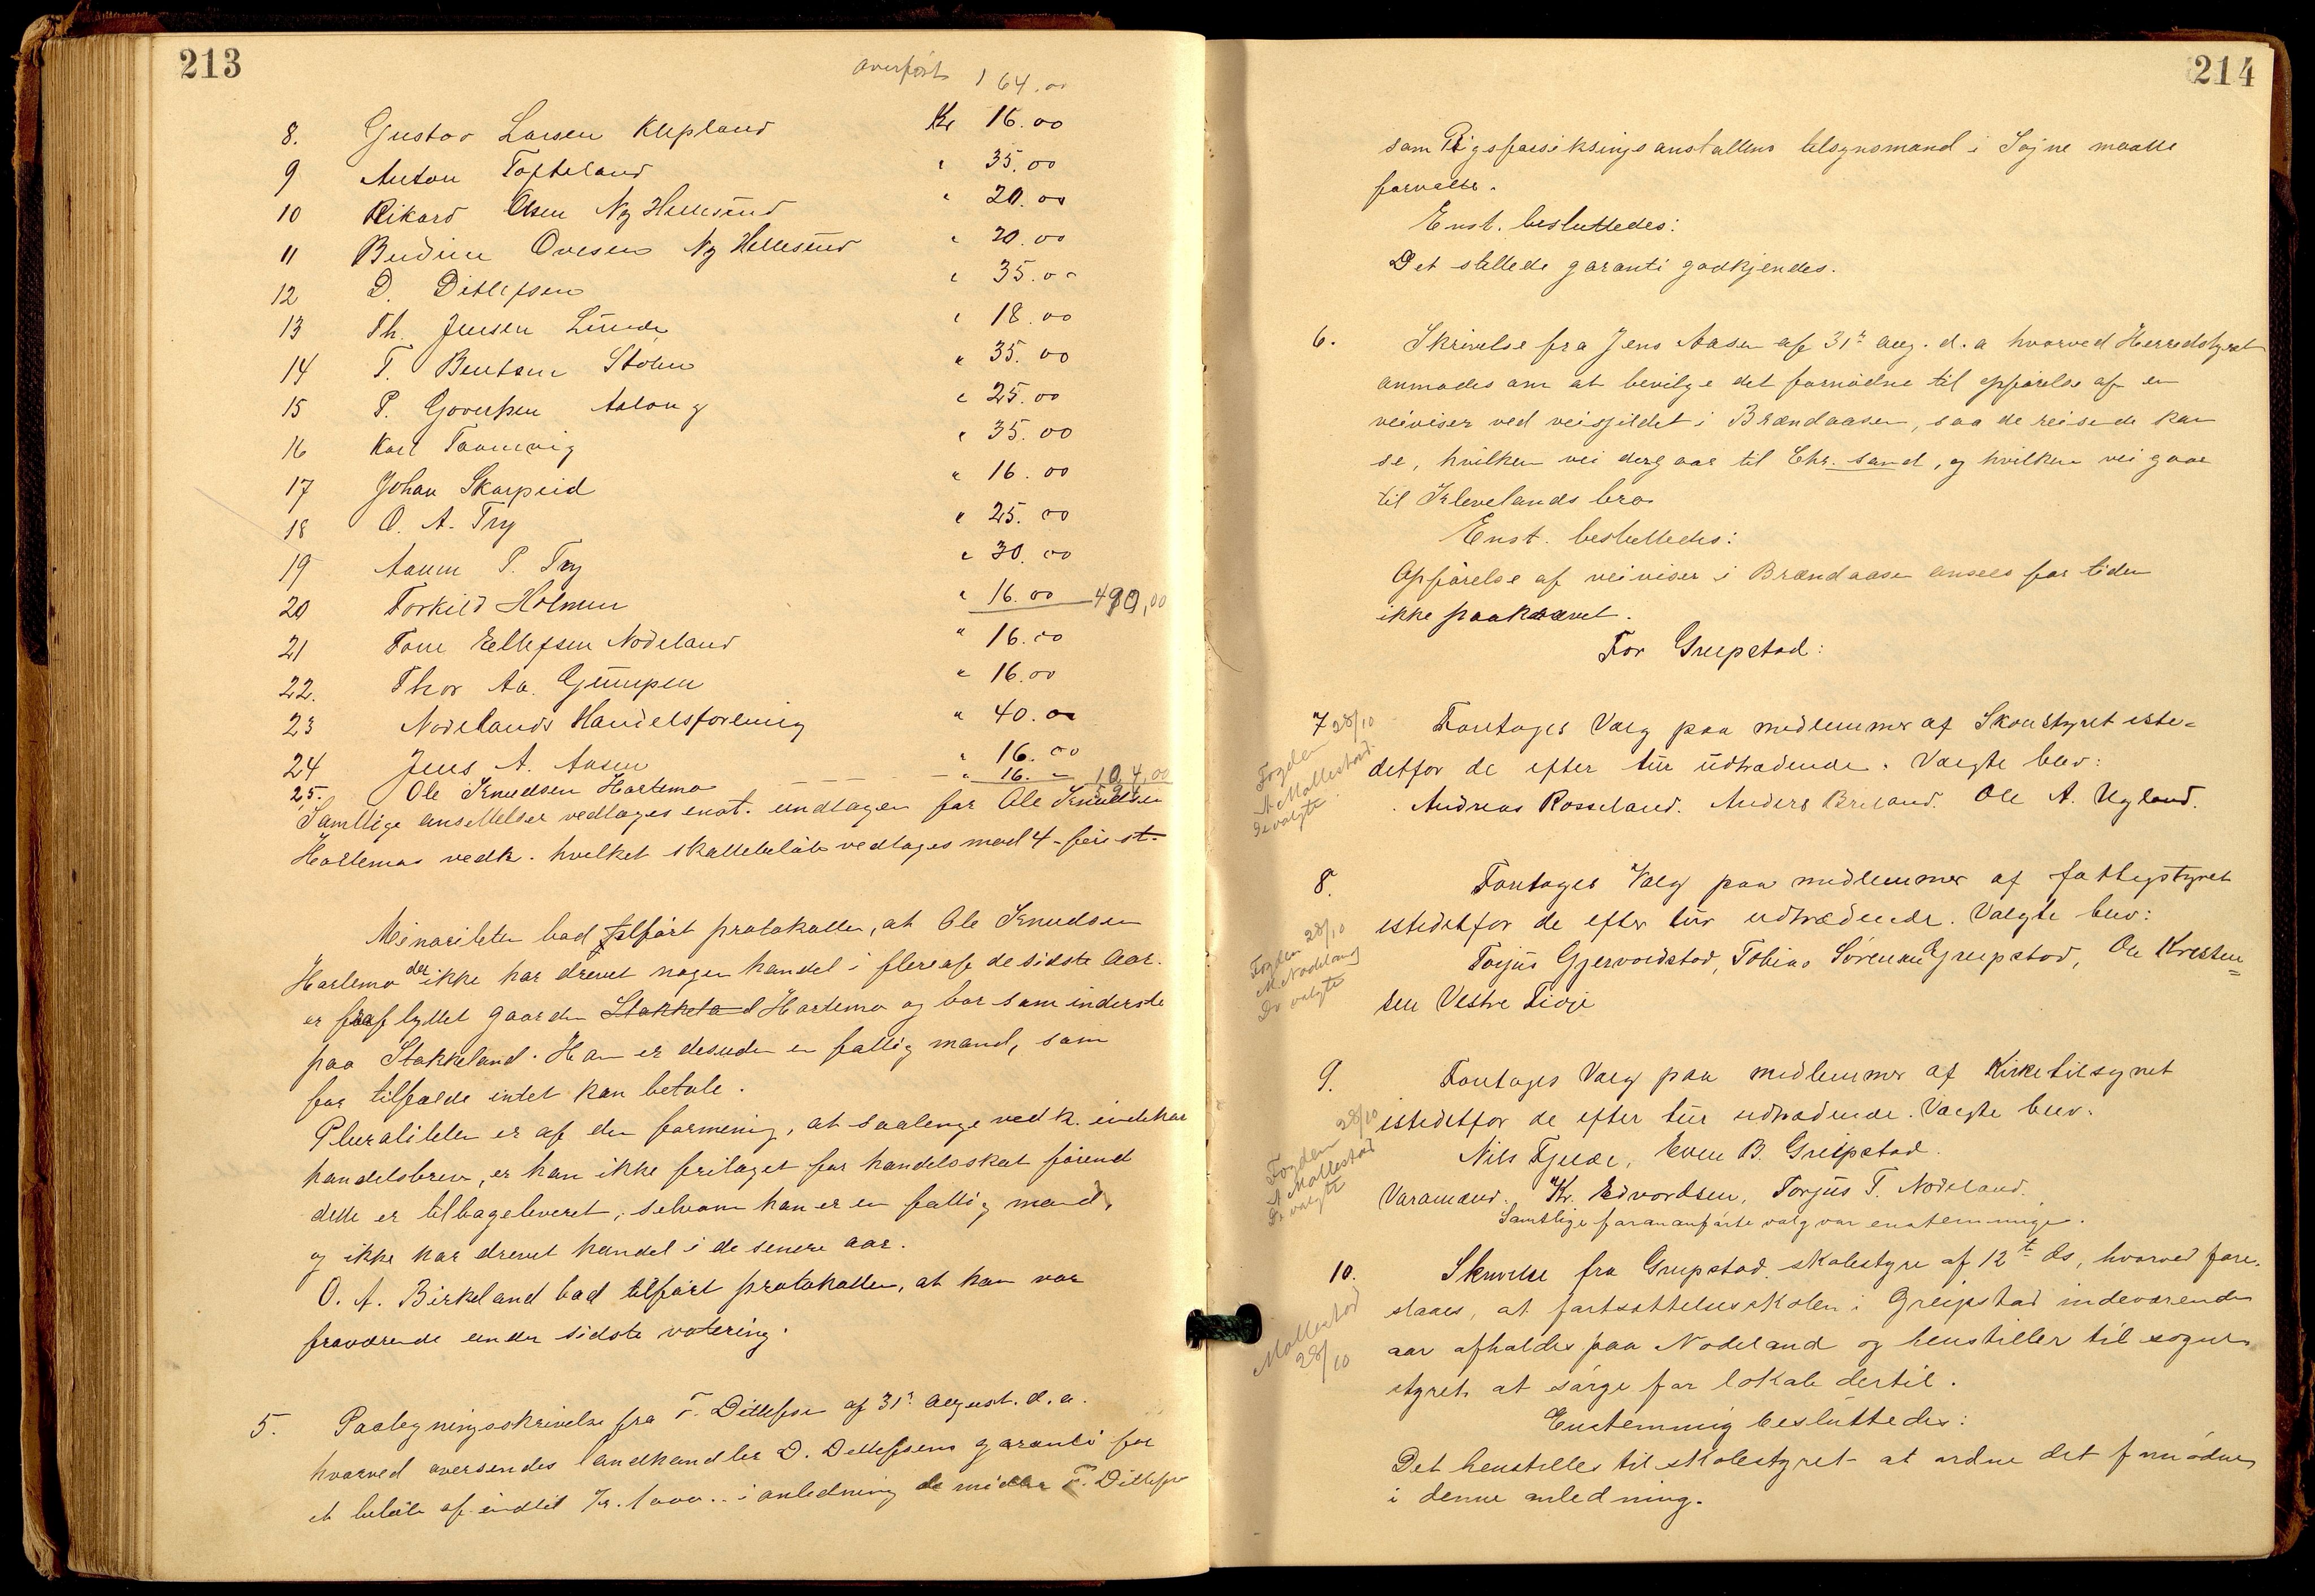 213
overført 164.00
8. Gustav Larsen Klepland Kr 16.00
9 Anton Tofteland " 35.00
10 Rikard Olsen Ny Hellesund " 20.00
11 Berdine Ovesen Ny Hellesund " 20.00
12 D. Ditlefsen " 35.00
13 Th. Jensen Lunde " 18.00
14 T. Bentsen Stølen " 35.00
15 P. Govertsen " 25.00
16 Karl Taumevig " 35.00
17 Johan Skarpeid " 16.00
18 O. A. Try " 25.00
19 Aanen P. Try " 30.00
20 Torkild Holmen " 16.00 490,00
21 Tom Ellefsen Nodeland " 16.00
22. Thor Aa. Gumpen " 16.00
23 Nodelands Handelsforening " 40.00
24 Jens A. Aasen " 16.00
25. Ole Knudsen Hortemo " 16. – 104,00
Samtlige ansettelser vedtoges enst. undtagen for Ole Knudsen
Hortemos vedk. hvilket skattebeløb vedtoges mod 4 – fire st.
Minoriteten bad tilført protokollen, at Ole Knudsen
Hortemo der ikke har drevet nogen handel i flere af de sidste Aar.
er fraflyttet gaarden Stokkeland Hortemo og bor som inderste
paa Stokkeland. Han er desuden en fattig mand, som
for tilfælde intet kan betale.
Pluraliteten er af den formening, at saalenge vedk. indehar
handelsbrev, er han ikke fritaget for handelsskat førend
dette er tilbageleveret, selvom han er en fattig mand,
og ikke har drevet handel i de senere aar.
O. A. Birkeland bad tilført protokollen, at han var
fraværende under sidste votering.
5. Paategningsskrivelse fra T. Ditlefsen af 31' August. d. a.
hvorved oversendes landhandler D. Ditlefsens garanti for
et beløb af indtil Kr. 1000.. i anledning de midler T. Ditlefsen
214
som Rigsforsikringsanstaltens tilsynsmand i Søgne maatte
forvalte.
Enst. besluttedes:
Det stillede garanti godkjendes.
6. Skrivelse fra Jens Aasen af 31' aug. d. a hvorved Herredstyret
anmodes om at bevilge det fornødne til opførelse af en
veiviser ved veiskjildet i Brændaasen, saa de reisende kan
se, hvilken vei der gaar til Chr.sand, og hvilken vei gaar
til Klevelands bro
Enst. besluttedes:
Opførelse af veiviser i Brændaasen ansees for tiden
ikke paakrævet.
For Greipstad:
7 28/10 Foretoges Valg paa medlemmer af Skovstyret iste-
Fogden
A Mollestad
De valgte
detfor de efter tur udtrædende. Valgte blev:
Andreas Rosseland. Anders Breland. Ole A. Ugland.
8. Foretoges Valg paa medlemmer af fattigstyret
Fogden 28/10
M. Nodeland
De valgte
istedetfor de efter tur udtrædende. Valgte blev:
Torjus Gjervoldstad, Tobias Sørensen Greipstad, Ole Kristen=
sen Vestre Tioje
9. Foretoges Valg paa medlemmer af Kirketilsynet
Fogden 28/10
A Mollestad
De valgte
istedetfor de efter tur udtrædende. Valgte blev.
Nils Fjelde, Even B. Greipstad.
Varamænd. Kr. Edvardsen, Torjus T. Nodeland.
Samtlige foranførte valg var enstemmige.
10. Skrivelse fra Greipstad skolestyre af 12t ds, hvorved fore-
Mollestad
28/10
slaaes, at fortsættelsesskolen i Greipstad indeværende
aar afholdes paa Nodeland og henstiller til sogne
styret at sørge for lokale dertil.
Enstemmig besluttedes:
Det henstilles til skolestyret at ordne det fornødne
i denne anledning.